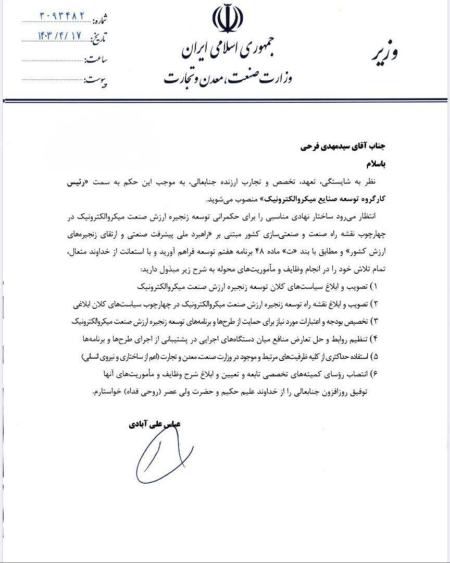 شماره: ۳۰۹۳۴۸۲
تاریخ: ۱۴۰۳/۴/۱۷
ساعت:
پیوست:
جمهوری اسلامی ایران
وزارت صنعت، معدن و تجارت
وزیر
جناب آقای سیدمهدی فرحی
باسلام
نظر به شایستگی، تعهد، تخصص و تجارب ارزنده جنابعالی، به موجب این حکم به سمت «رئیس
کارگروه توسعه صنایع میکروالکترونیک» منصوب می‌شوید.
انتظار می‌رود ساختار نهادی مناسبی را برای حکمرانی توسعه زنجیره ارزش صنعت میکروالکترونیک در
چهارچوب نقشه راه صنعت و صنعتی‌سازی کشور مبتنی بر «راهبرد ملی پیشرفت صنعتی و ارتقای زنجیره‌های
ارزش کشور» و مطابق با بند «ت» ماده ۴۸ برنامه هفتم توسعه فراهم آورید و با استعانت از خداوند متعال،
تمام تلاش خود را در انجام وظایف و مأموریت‌های محوله به شرح زیر مبذول دارید:
۱) تصویب و ابلاغ سیاست‌های کلان توسعه زنجیره ارزش صنعت میکروالکترونیک
۲) تصویب و ابلاغ نقشه راه توسعه زنجیره ارزش صنعت میکروالکترونیک در چهارچوب سیاست‌های کلان ابلاغی
۳) تخصیص بودجه و اعتبارات مورد نیاز برای حمایت از طرح‌ها و برنامه‌های توسعه زنجیره ارزش صنعت میکروالکترونیک
۴) تنظیم روابط و حل تعارض منافع میان دستگاه‌های اجرایی در پشتیبانی از اجرای طرح‌ها و برنامه‌ها
۵) استفاده حداکثری از کلیه ظرفیت‌های مرتبط و موجود در وزارت صنعت، معدن و تجارت (اعم از ساختاری و نیروی انسانی)
۶) انتصاب رؤسای کمیته‌های تخصصی تابعه و تعیین و ابلاغ شرح وظایف و مأموریت‌های آنها
توفیق روزافزون جنابعالی را از خداوند علیم حکیم و حضرت ولی عصر (روحی فداه) خواستارم.
عباس علی آبادی